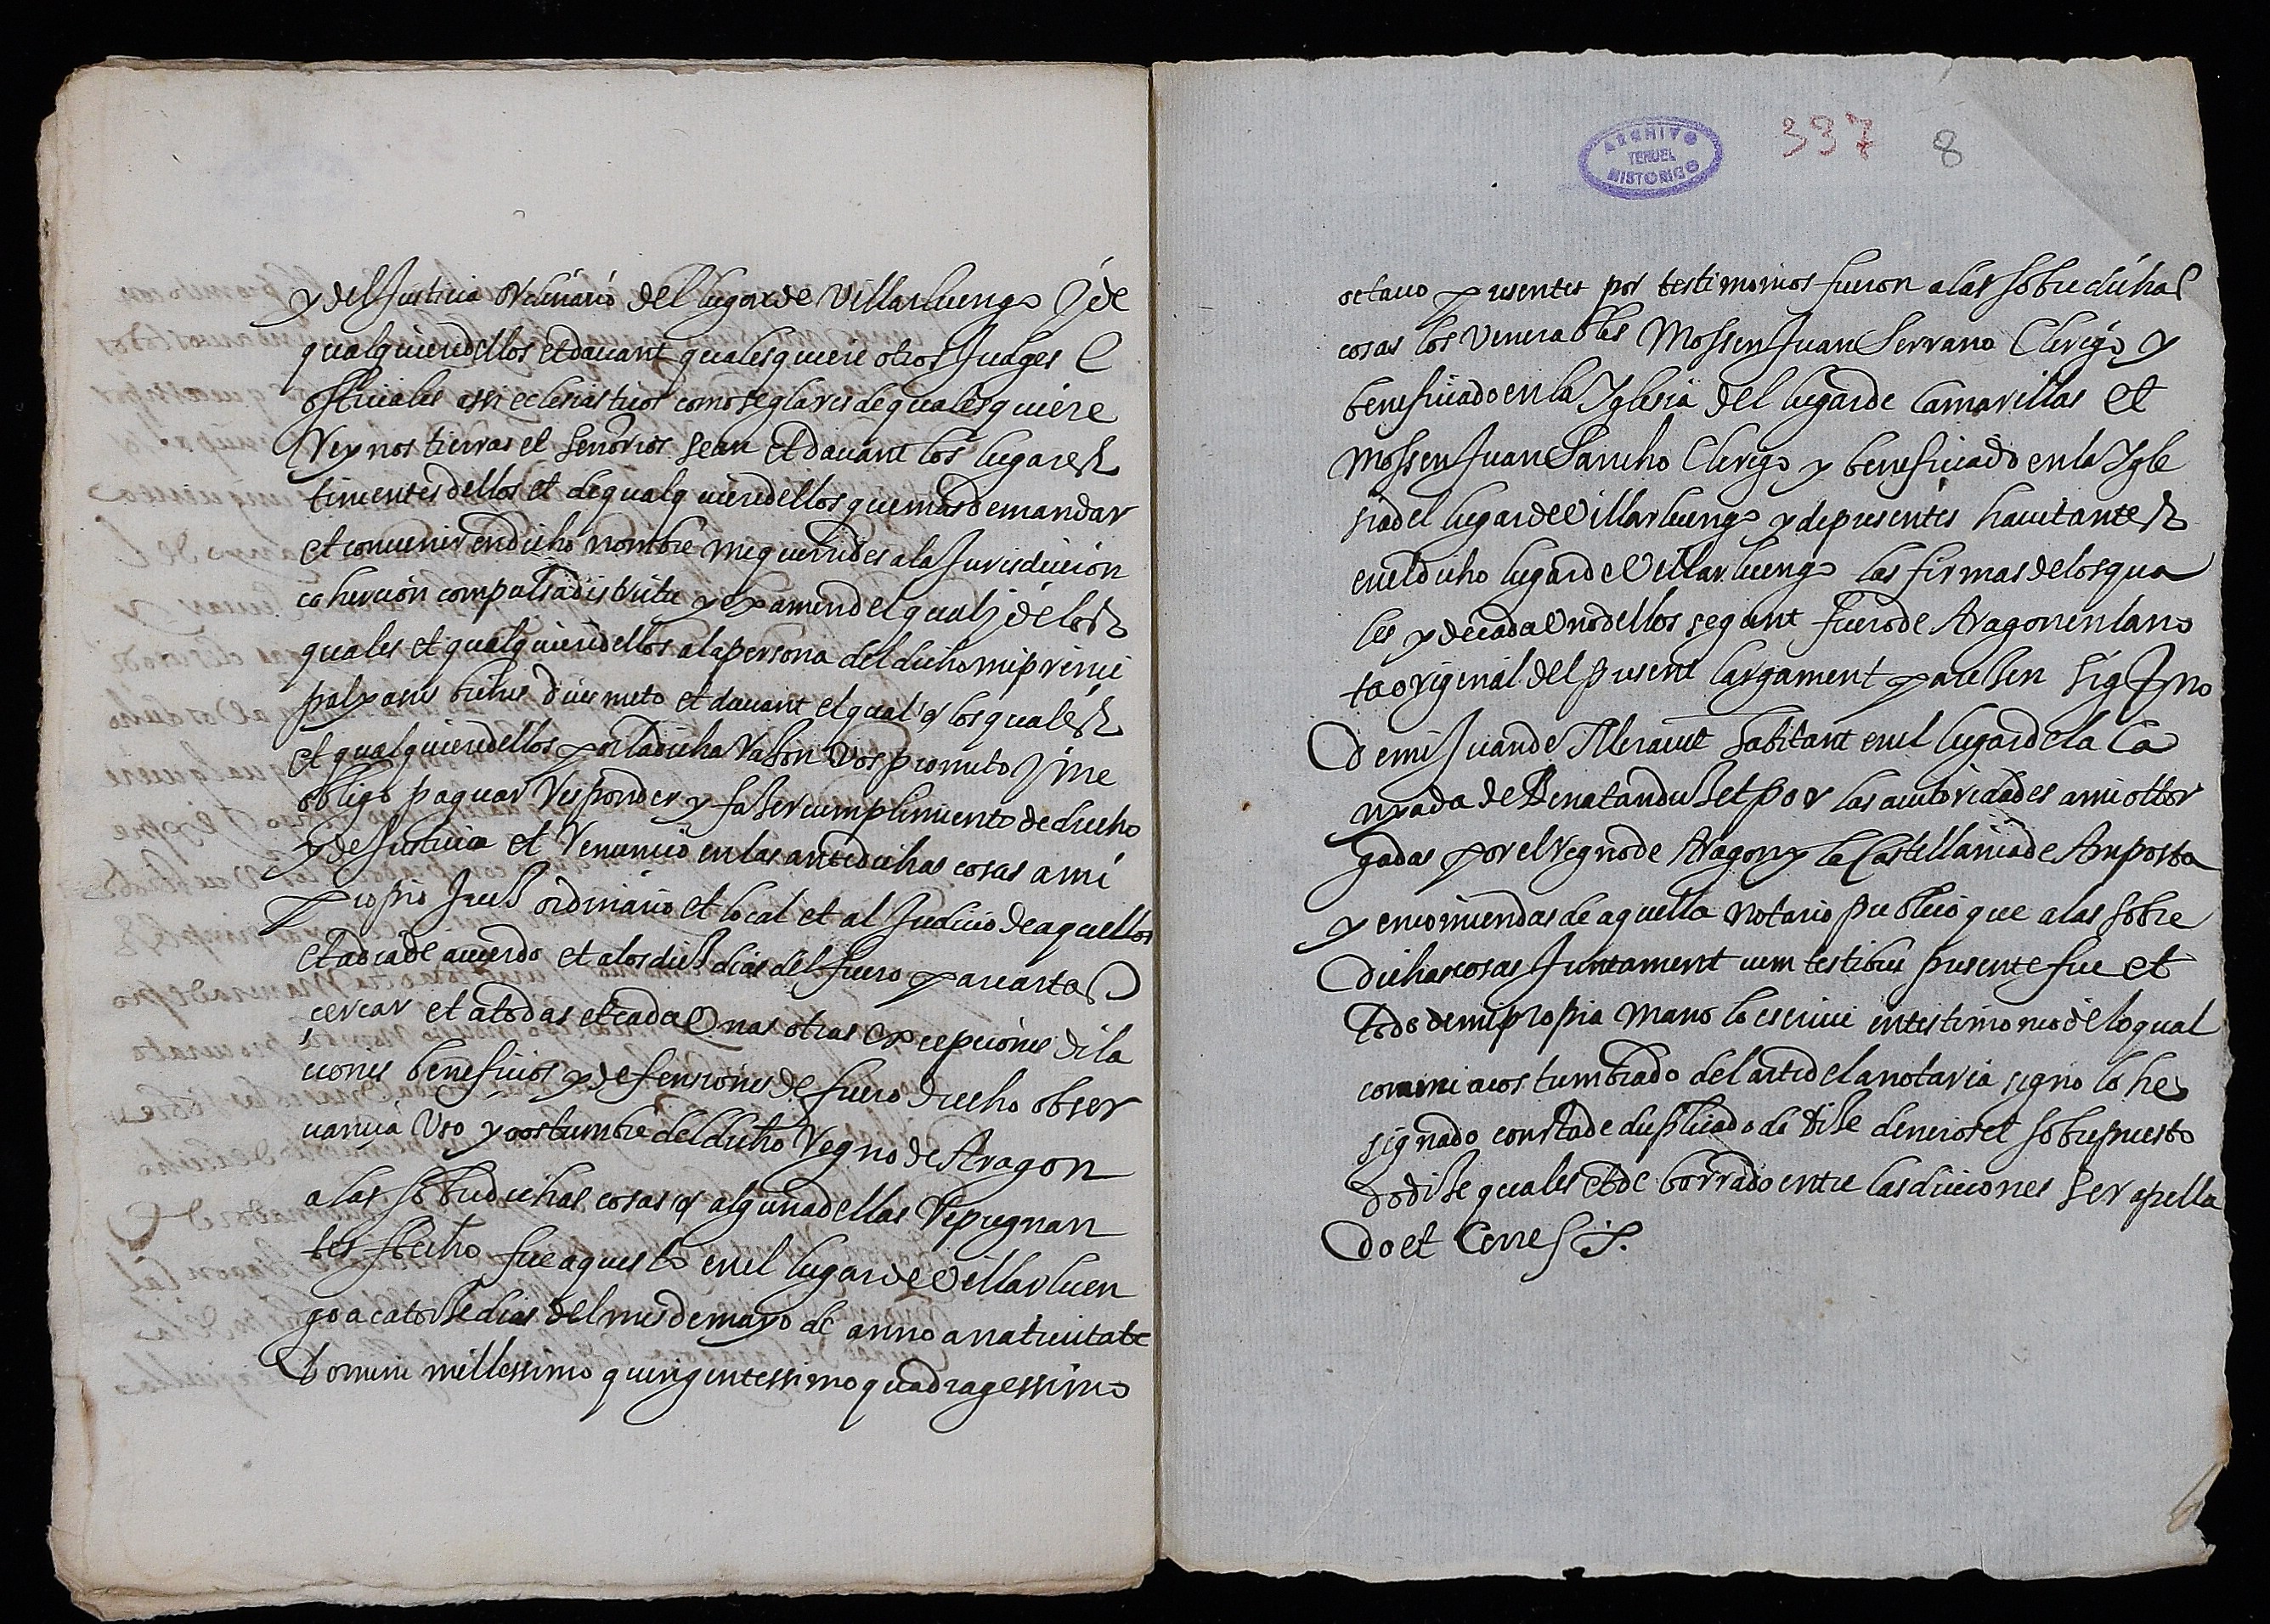 y del Justicia Ordinario del lugar de Villarluengo y de
qualquiere dellos et dauant qualesquiere otros Judges e
officiales assi eclesiasticos como seglares de qualesquiere
Reynos tierras et señorios sean et dauant los lugares
tinientes dellos et de qualquiere dellos que mas demandar
et conuenir en dicho nombre me querrides a la Jurisdicion
cohercion compulsa districtu y examen del qual y de los
quales et qualquiere dellos a la persona del dicho mi princi
pal y a sus bienes diusmeto et dauant el qual o los quales
et qualquiere dellos por la dicha rason vos prometo y me
obligo paguar Responder y faser cumplimiento de drecho
y de Justicia et Renuncio en las antedichas cosas a mi
propio Jues ordinario et local et al Judicio de aquellos
et a dia de acuerdo et a los dies dias del fuero para cartas
cercar et a todas et cada unas otras excepciones dila
ciones beneficios y defensiones de fuero drecho obser
uancia Vso y costumbre del dicho Regno de Aragon
a las sobredichas cosas o alguna dellas Repugnan
tes ffecho fue aquesto en el lugar de Villarluen
go a catorse dias del mes de mayo de anno a natiuitate
Domini millessimo quingentessimo quadragessimo
ARCHIVO
TERUEL
HISTORICO
397 8
octauo presentes por testimonios fueron a las sobredichas
cosas los venerables Mossen Juan Serrano Clerigo y
beneficiado en la Iglesia del lugar de Camarillas et
Mossen Juan Sancho Clerigo y beneficiado en la Igle
sia del lugar de Villarluengo y de presentes hauitantes
en el dicho lugar de Villarluengo las firmas de los qua
les y de cada uno dellos segunt fuero de Aragon en la no
ta original del present largament paresen Sig no
de mi Juan de Miraut habitant en el lugar de la Ca
nyada de Benatandus et por las autoridades a mi ottor
gadas por el regno de Aragon y la Castellania de Amposta
y encomiendas de aquella notario publico que a las sobre
dichas cosas Juntament cum testibus presente fue et
todo de mi propia mano lo escriui en testimonio de lo qual
con mi acostumbrado del arte de la notaria signo lo he
signado consta de duplicado do dise dineros et sobrepuesto
do dise quales et de borrado entre las diciones ser apella
do et Cerre S.